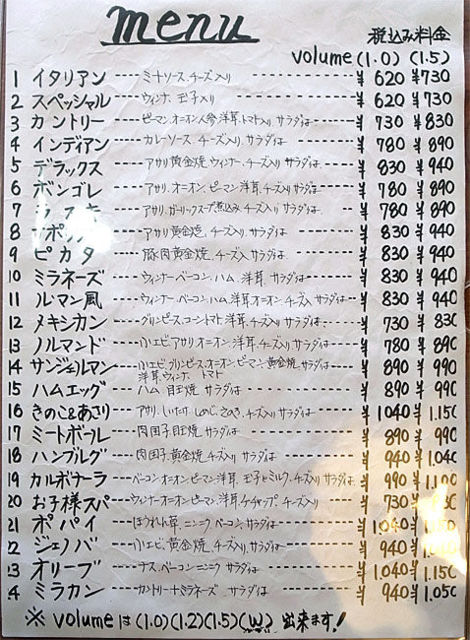 menu
税込み料金
volume (1.0) (1.5)
1 イタリアン ---- ミートソース、チーズ入り ---- ¥620 ¥730
2 スペッシャル ---- ウィンナ、玉子入り ---- ¥620 ¥730
3 カントリー ---- ピーマン、オニオン、人参、洋茸、トマト入り、サラダは ---- ¥730 ¥830
4 インディアン ---- カレーソース、チーズ入り、サラダは ---- ¥780 ¥890
5 デラックス ---- アサリ、黄金焼、ウィンナー、チーズ入り、サラダは ---- ¥830 ¥940
6 ボンゴレ ---- アサリ、オニオン、ピーマン、洋茸、チーズ入り、サラダは ---- ¥780 ¥890
7 ---- アサリ、ガーリックスープ煮込み、チーズ入り、サラダは ---- ¥780 ¥890
8 ---- アサリ、黄金焼、チーズ入り、サラダは ---- ¥830 ¥940
9 ピカタ ---- 豚肉黄金焼、チーズ入り、サラダは ---- ¥830 ¥940
10 ミラネーズ ---- ウィンナー、ベーコン、ハム、洋茸、サラダは ---- ¥830 ¥940
11 ルマン風 ---- ウィンナー、ベーコン、ハム、洋茸、オニオン、チーズ入、サラダは ---- ¥830 ¥940
12 メキシカン ---- グリンピース、コーン、トマト、洋茸、チーズ入り、サラダは ---- ¥730 ¥830
13 ノルマンド ---- 小エビ、アサリ、オニオン、洋茸、チーズ入り、サラダは ---- ¥780 ¥890
14 サンジェルマン ---- 小エビ、グリンピース、オニオン、ピーマン、黄金焼、サラダは ---- ¥890 ¥990
洋茸、ウィンナ、トマト
15 ハムエッグ ---- ハム、目玉焼、サラダは ---- ¥890 ¥990
16 きのこ&あさり ---- アサリ、しいたけ、しめじ、えのき、チーズ入り、サラダは ---- ¥1040 ¥1.150
17 ミートボール ---- 肉団子、目玉焼、サラダは ---- ¥890 ¥990
18 ハンブルグ ---- 肉団子、黄金焼、チーズ入り、サラダは ---- ¥940 ¥1.040
19 カルボナーラ ---- ベーコン、オニオン、ピーマン、洋茸、玉子とミルク、チーズ入り、サラダは ---- ¥990
20 お子様スパ ---- ウィンナー、オニオン、ピーマン、洋茸、ケチャップ、チーズ入り ---- ¥730
21 ポパイ ---- ほうれん草、ニンニク、ベーコン、サラダは ---- ¥1.040
2 ジェノバ ---- 小エビ、黄金焼、チーズ入り、サラダは ---- ¥940
3 オリーブ ---- ナス、ベーコン、ニンニク、サラダは ---- ¥1.040 ¥1.150
4 ミラカン ---- カントリー+ミラネーズ、サラダは ---- ¥940 ¥1.050
※ volumeは(1.0)(1.2)(1.5)(W) 出来ます!